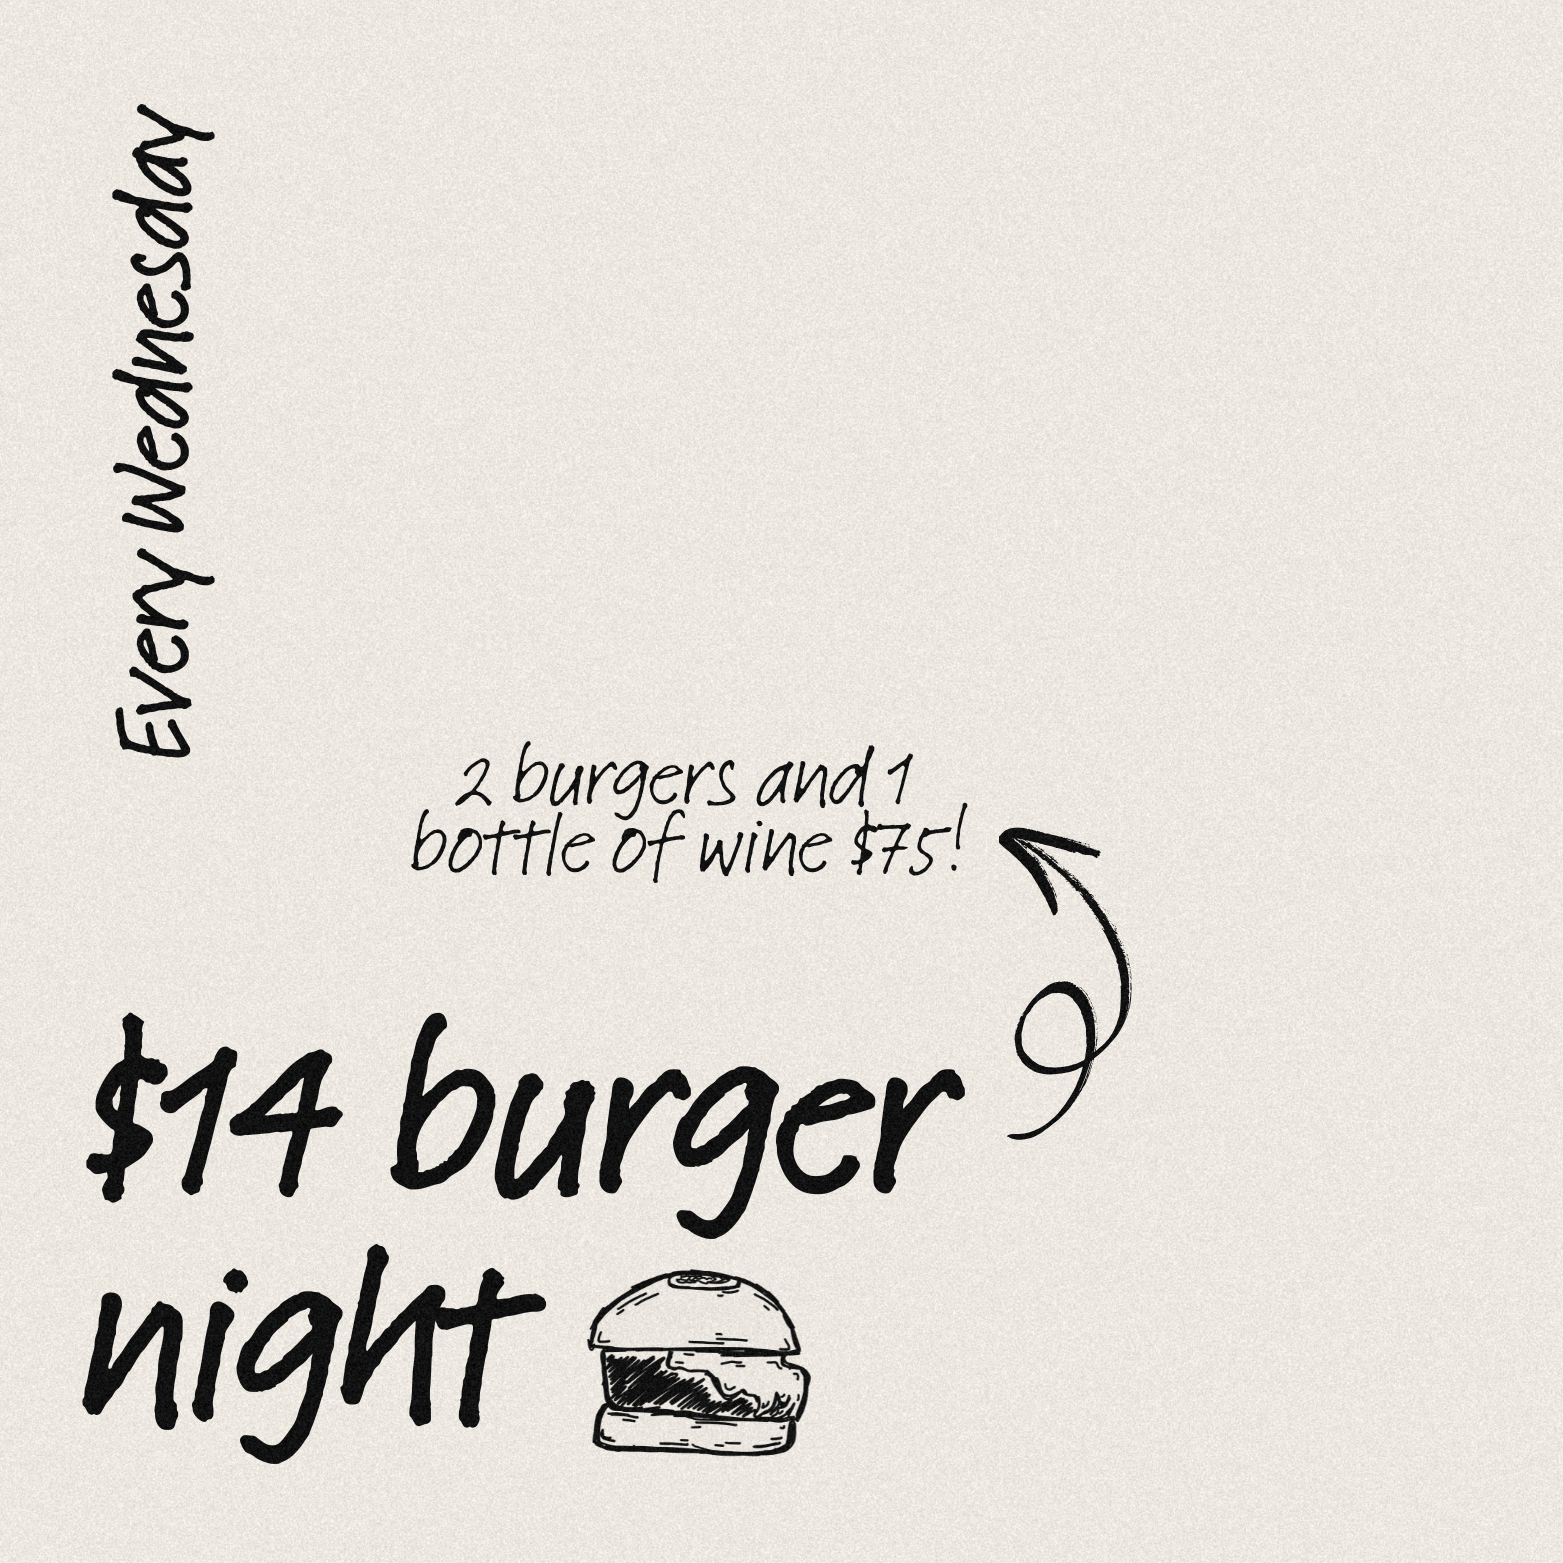 Every Wednesday
2 burgers and 1
bottle of wine $75!
$14 burger
night